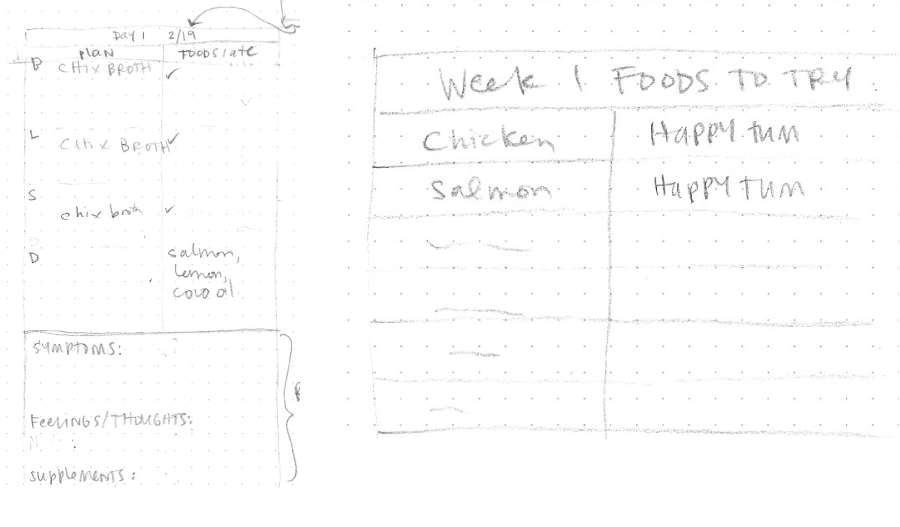 Day 1 2/19
Plan FOODS I ate
B CHIX BROTH ✓
L CHIX BROTH ✓
S chix broth ✓
D salmon,
lemon,
coco oil
SYMPTOMS:
FEELINGS/THOUGHTS:
supplements:
Week 1 FOODS TO TRY
Chicken Happy tum
Salmon Happy tum